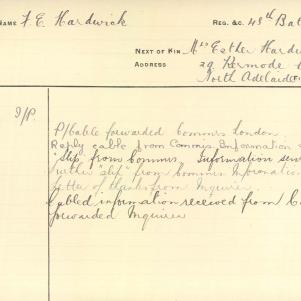 NAME F. E. Hardwick
REG. &C. 43th Bat
NEXT OF KIN Mrs Esther Hardw
ADDRESS 29 Kermode
North Adelaide
P/Cable forwarded Commrs London.
Reply cable from Commrs Information
"slip" from Commrs. Information sen
further slip from Commrs Information
letter of thanks from Inquirer
Cabled information received from C
forwarded Inquirer